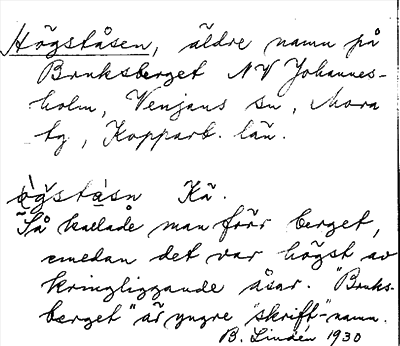 Högståsen, äldre namn på
Bruksberget NV Johannes-
holm, Venjans sn, Mora
tg, Kopparb. län.
Kä.
Så kallade man förr berget,
emedan det var högst av
kringliggande åsar. "Bruks-
berget" är yngre "skrift"-namn.
B. Lindén 1930